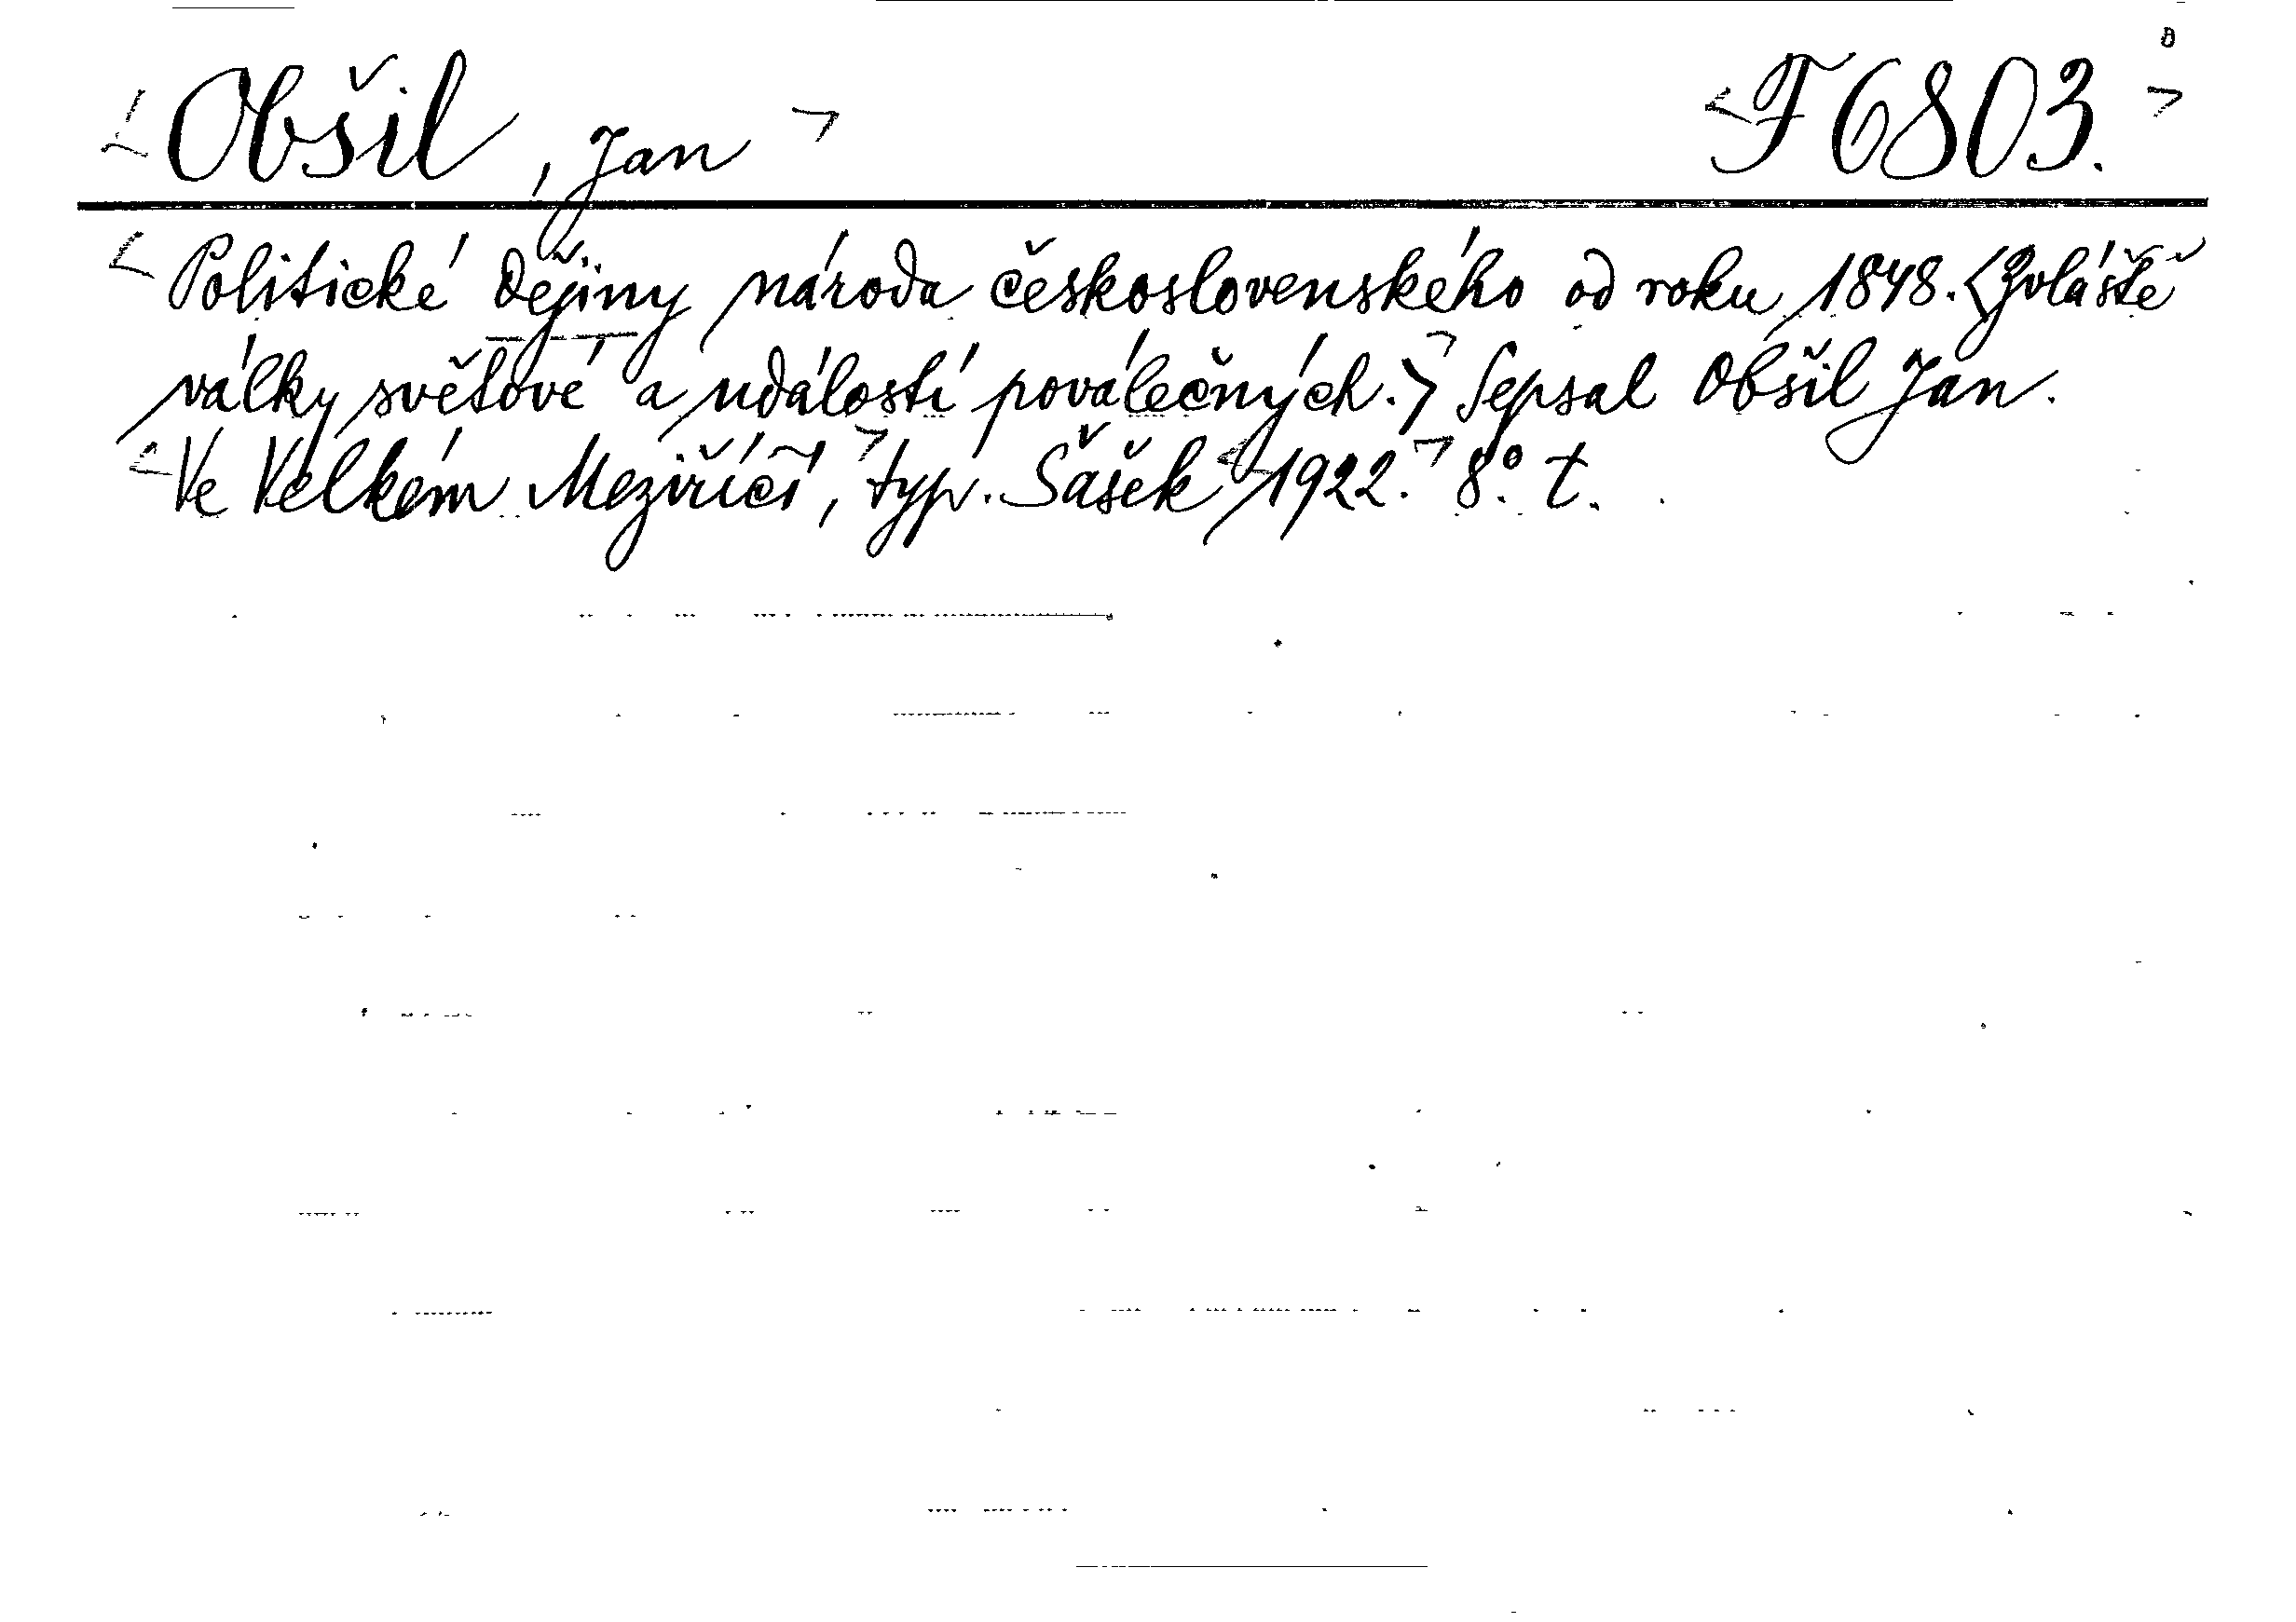 <Obšil, Jan> <F 6803.>
<Politické dějiny národa československého od roku 1848. <Zvláště
války světové a událostí poválečných.>> Sepsal Obšil Jan.
<Ve Velkém Meziříčí,> typ. Šašek <1922.> 8º. t.